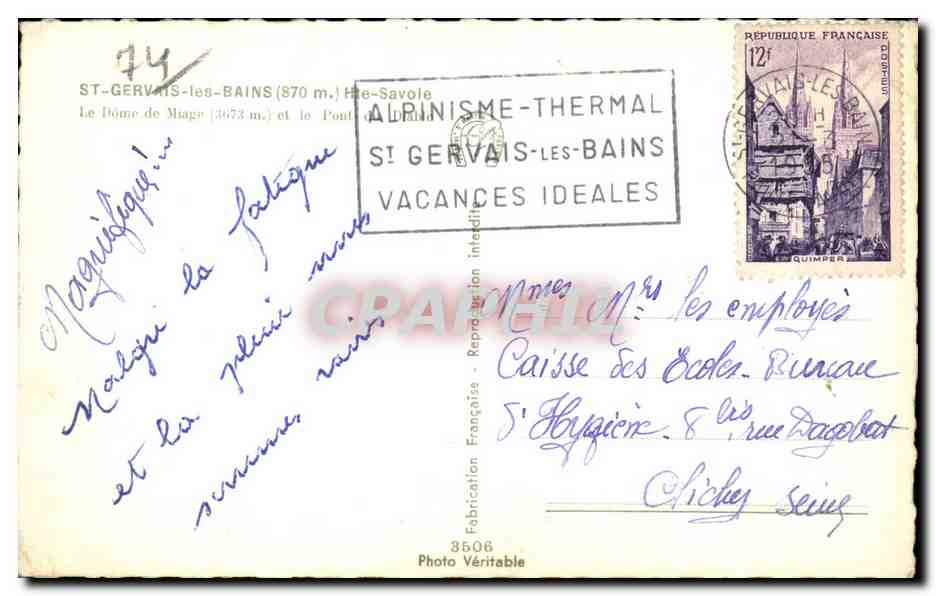 74
ST-GERVAIS-les-BAINS (870 m.) Hte-Savoie
Le Dôme de Miage (3673 m.) et le Pont du Diable
ALPINISME-THERMAL
ST GERVAIS-LES-BAINS
VACANCES IDEALES
RÉPUBLIQUE FRANÇAISE
12f
POSTES
QUIMPER
ST GERVAIS-LES-BAINS
Magnifique...
Malgré la fatigue
et la pluie nous
sommes ravis
Mmes Mrs les employés
Caisse des Ecoles - Bureau
d'Hygiène - 8 bis, rue Dagobert
Clichy Seine
Fabrication Française - Reproduction interdite
3506
Photo Véritable
CPAPHIL